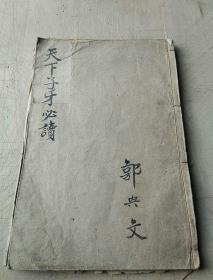 天下子才必讀
郭典文